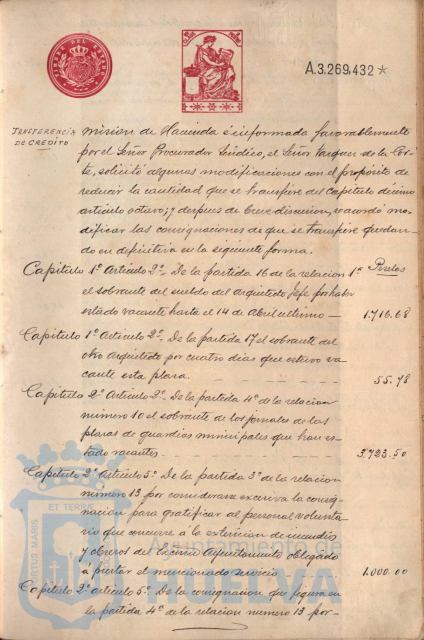 A.3.269,432*
TRANSFERENCIA
DE CREDITO
mision de Hacienda é informada favorablemente
por el Señor Procurador Sindico, el Señor Vazquez de la Cor-
te, solicitó algunas modificaciones con el propósito de
reducir la cantidad que se transfiere del Capitulo decimo
articulo octavo; y despues de breve discusion, se acordó mo-
dificar las consignaciones de que se transfiere quedan-
do en definitiva en la siguiente forma.
Capitulo 1º Articulo 2º. De la partida 16 de la relacion 1ª Pesetas
el sobrante del sueldo del arquitecto Jefe por haber
estado vacante hasta el 14 de Abril ultimo — 1.716.68
Capitulo 1º Articulo 2º. De la partida 17 el sobrante del
otro Arquitecto por cuatro dias que estuvo va
cante esta plaza. 55.78
Capitulo 2º Articulo 2º. De la partida 4ª de la relacion
numero 10 el sobrante de los jornales de las
plazas de guardias municipales que han es-
tado vacantes 3.723.50
Capitulo 2º Articulo 5º. De la partida 3ª de la relacion
numero 13 por considerarse excesiva la consig-
nacion para gratificar al personal volunta-
rio que concurre a la extincion de incendios
y obreros del Excmo Ayuntamiento obligado
á prestar el mencionado servicio 1.000.00
Capitulo 2º articulo 5º. De la consignacion que figura en
la partida 4ª de la relacion numero 13 por-
ET TERRE
PORTUS MARIS
Ayuntamiento de
HUELVA